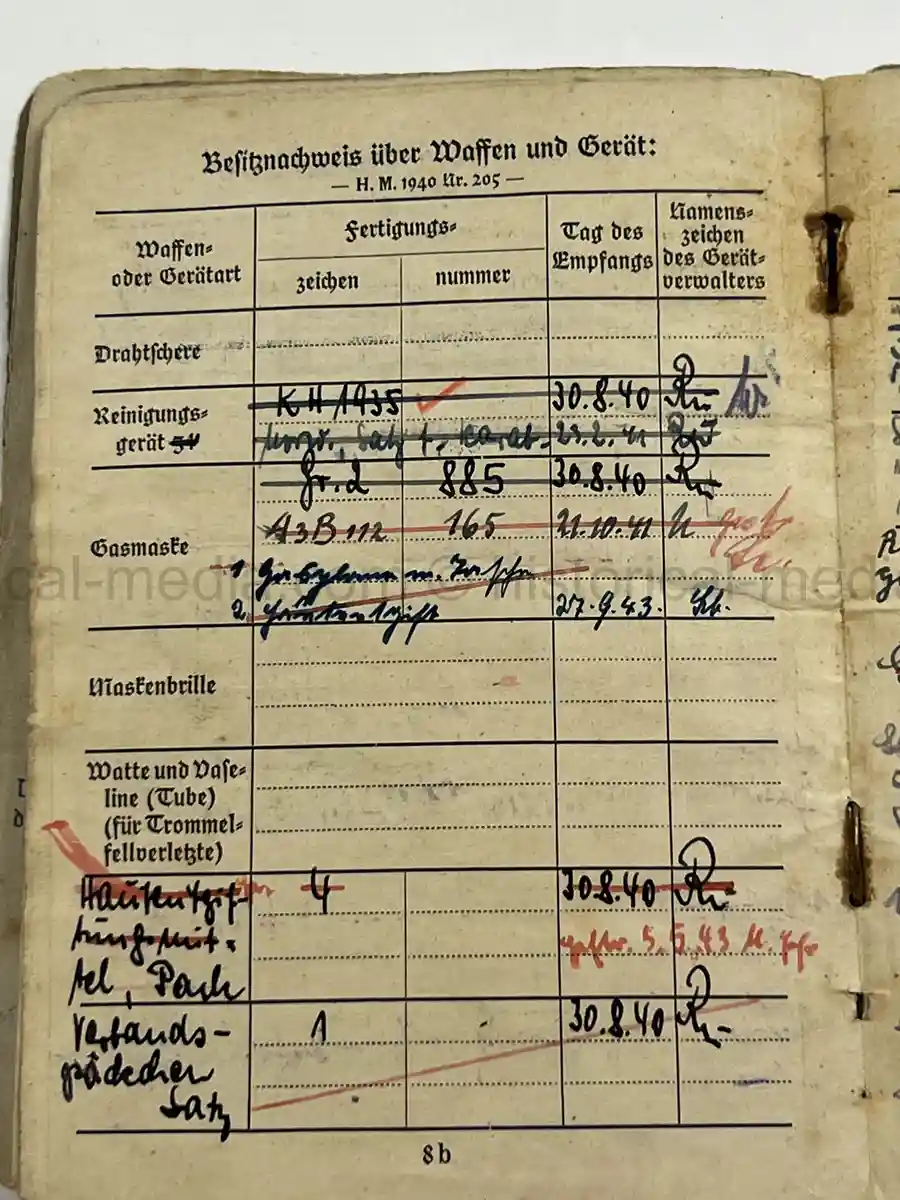 Besitznachweis über Waffen und Gerät:
— H. M. 1940 Nr. 205 —
Waffen-
oder Gerätart
Fertigungs-
zeichen
nummer
Tag des
Empfangs
Namens-
zeichen
des Gerät-
verwalters
Drahtschere
Reinigungs-
gerät 34
KH/1935 30.8.40 Ru
Satz f. Karab. 23.2.41
Gasmaske
Gr. 2 885 30.8.40 Ru
A3B 112 165 21.10.41
1 Gasplane m. Tasche
2. Hautentgift 27.9.43.
Maskenbrille
Watte und Vase-
line (Tube)
(für Trommel-
fellverletzte)
Hautentgif-
tungsmit-
tel, Pack
4 30.8.40 Ru
5.5.43
Verbands-
päckchen
Satz
1 30.8.40 Ru
8b